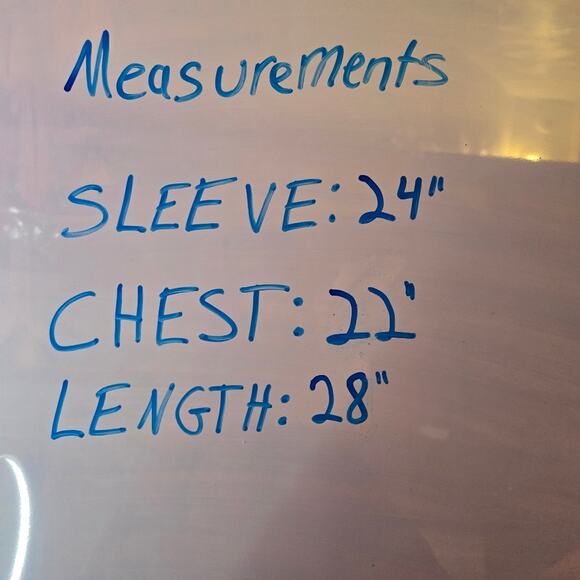 Measurements
SLEEVE: 24"
CHEST: 22"
LENGTH: 28"